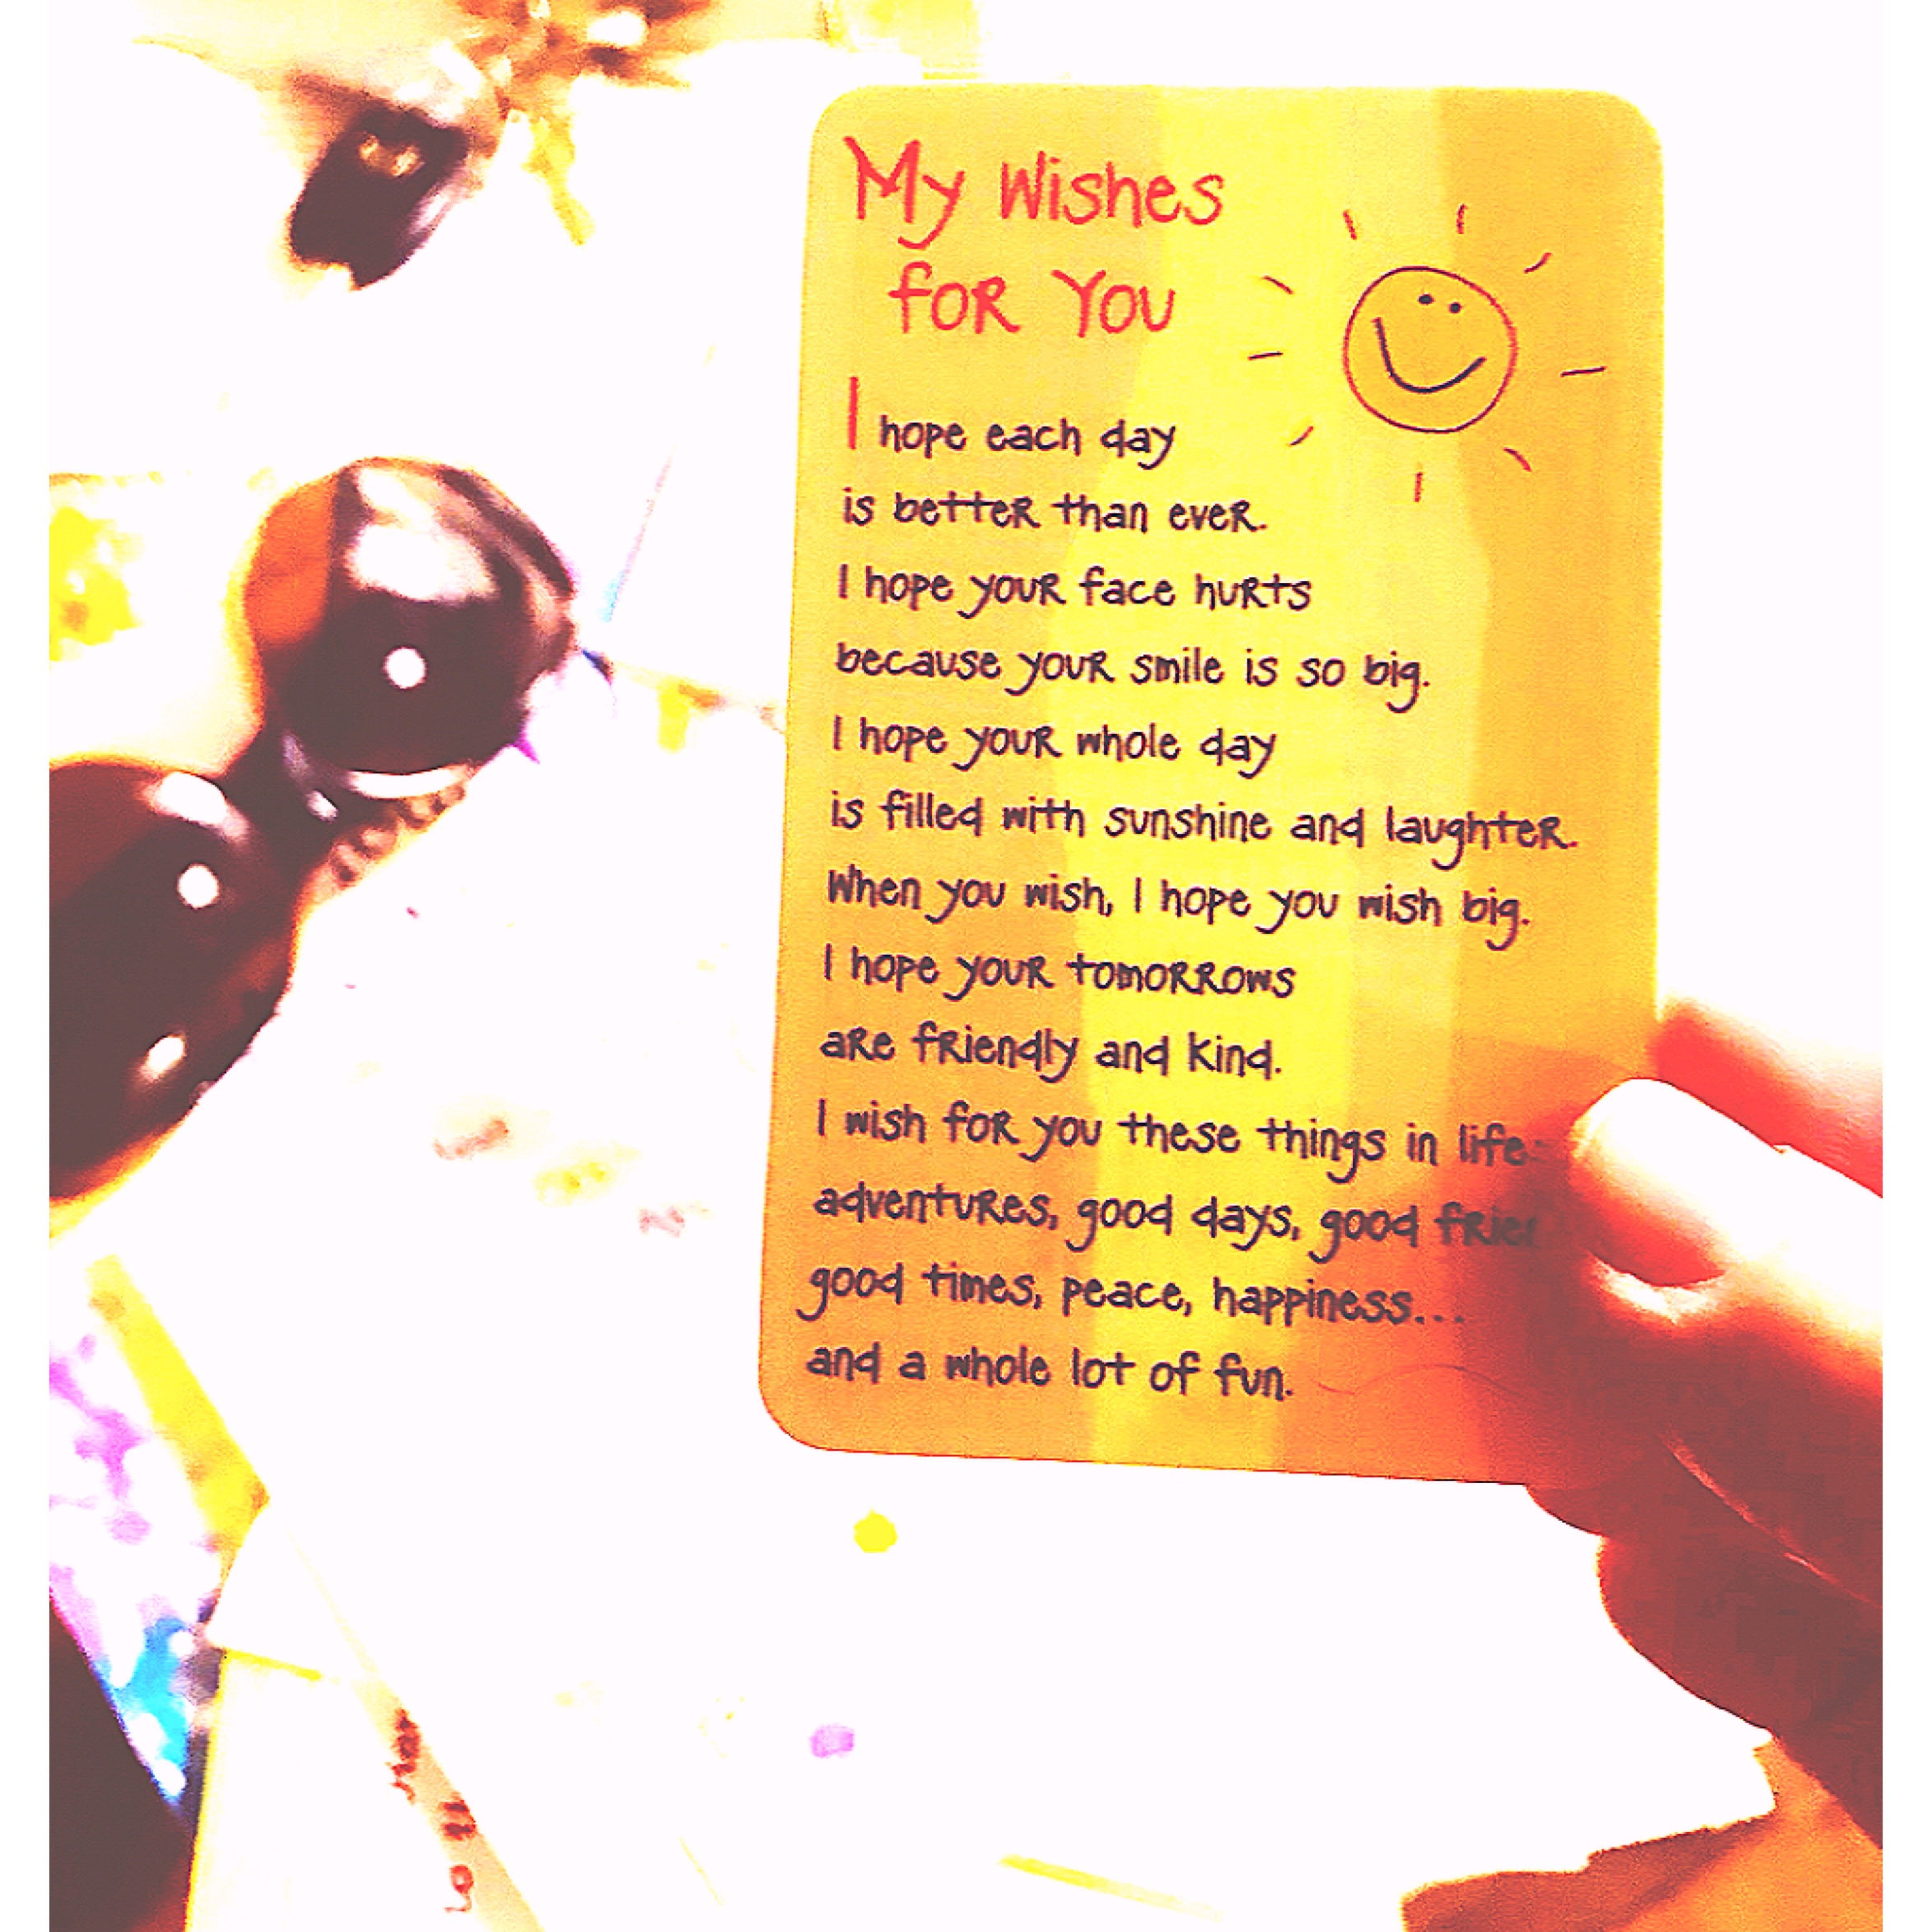 My Wishes
for You
I hope each day
is better than ever.
I hope your face hurts
because your smile is so big.
I hope your whole day
is filled with sunshine and laughter.
When you wish, I hope you wish big.
I hope your tomorrows
are friendly and kind.
I wish for you these things in life
adventures, good days, good
good times, peace, happiness...
and a whole lot of fun.